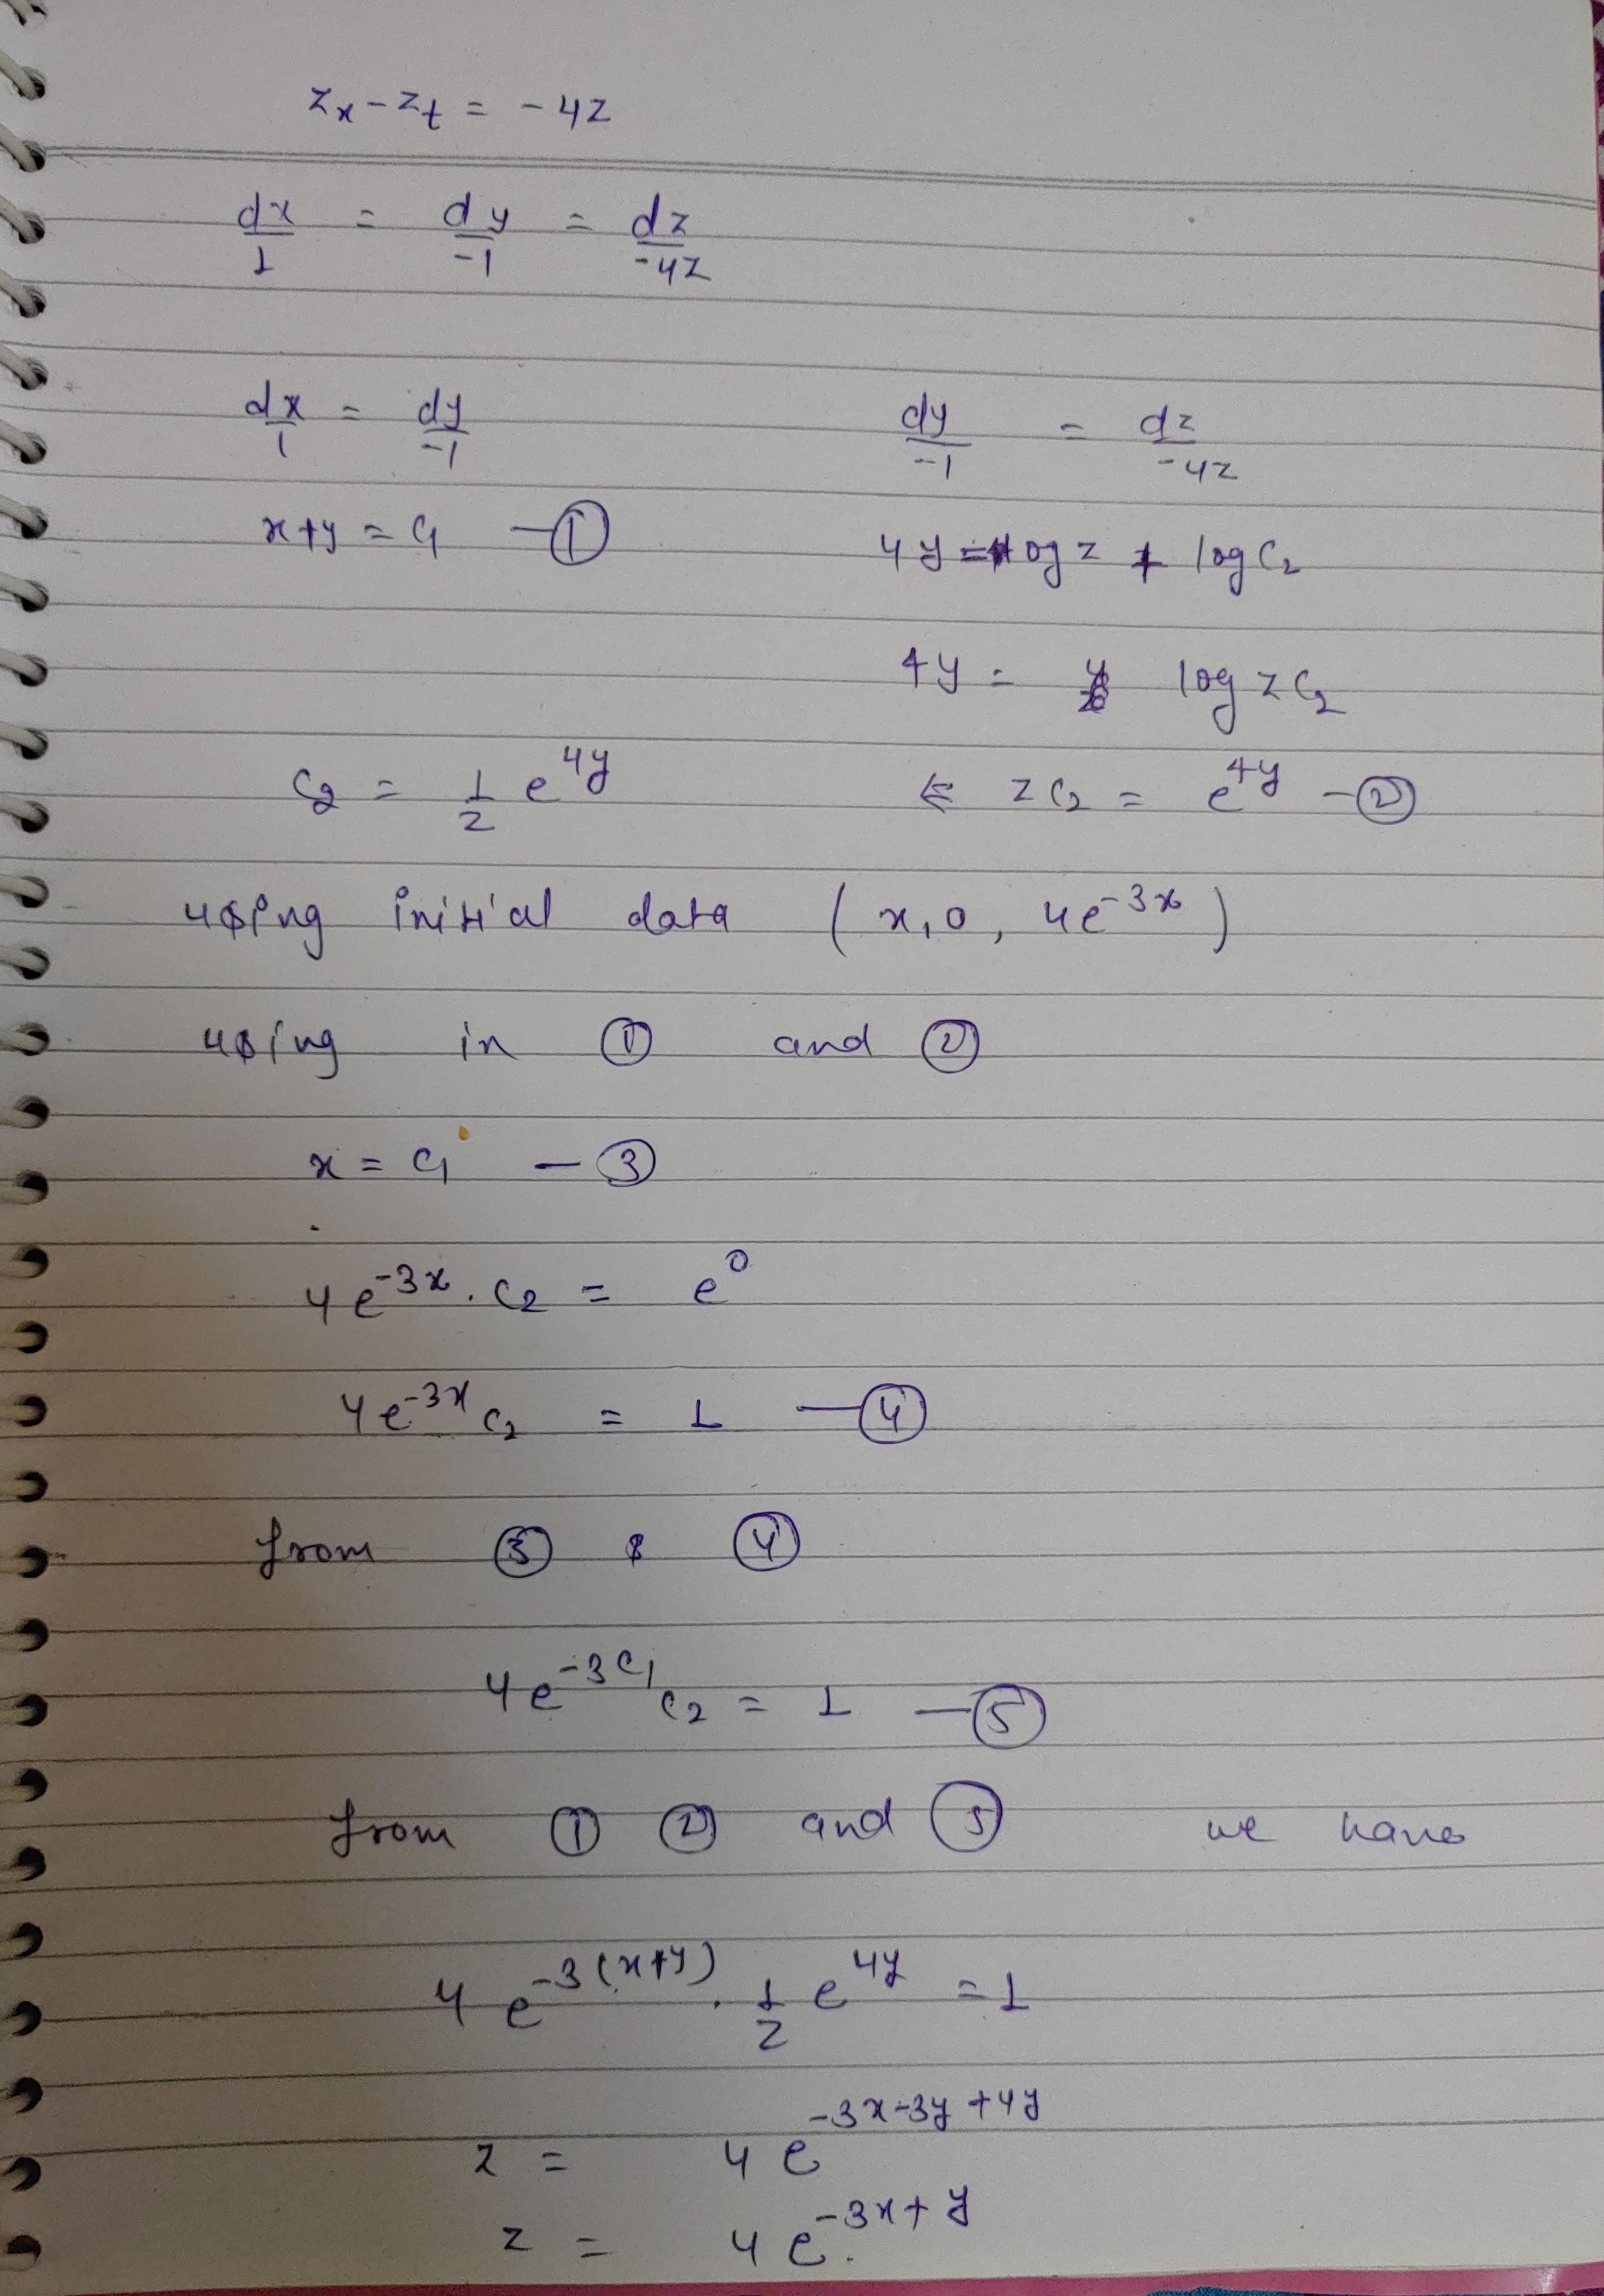 z_x - z_t = -4z
dx/1 = dy/-1 = dz/-4z
dx/1 = dy/-1 dy/-1 = dz/-4z
x+y = c₁ —① 4y = log z + log c₂
4y = log z c₂
c₂ = 1/z e^{4y} ⇐ z c₂ = e^{4y} —②
using initial data (x, 0, 4e^{-3x})
using in ① and ②
x = c₁ —③
4e^{-3x} . c₂ = e^0
4e^{-3x} c₂ = 1 —④
from ③ & ④
4e^{-3c₁} c₂ = 1 —⑤
from ① ② and ⑤ we have
4 e^{-3(x+y)} . 1/z e^{4y} = 1
z = 4 e^{-3x-3y+4y}
z = 4 e^{-3x+y}.